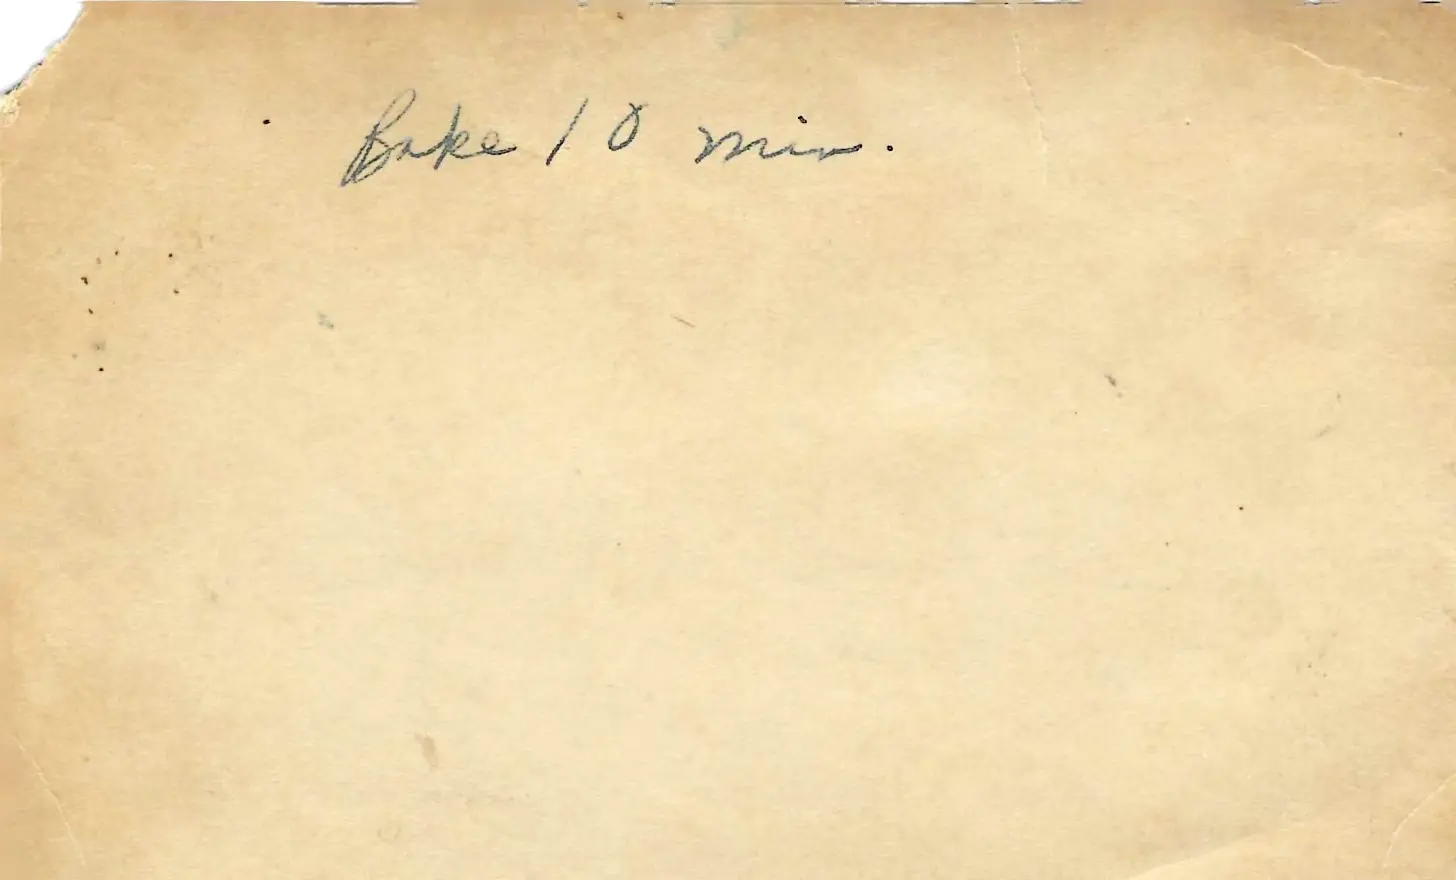 Bake 10 min.